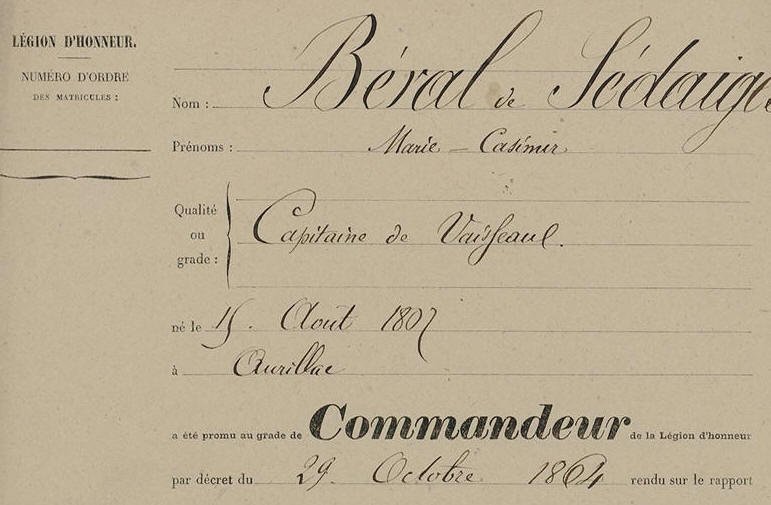 LÉGION D'HONNEUR.
NUMÉRO D'ORDRE
DES MATRICULES :
Nom : Béral de Sédaige
Prénoms : Marie - Casimir
Qualité
ou
grade :
Capitaine de Vaisseau.
né le 15. Août 1807
à Aurillac
a été promu au grade de Commandeur de la Légion d'honneur
par décret du 29. Octobre 1864 rendu sur le rapport